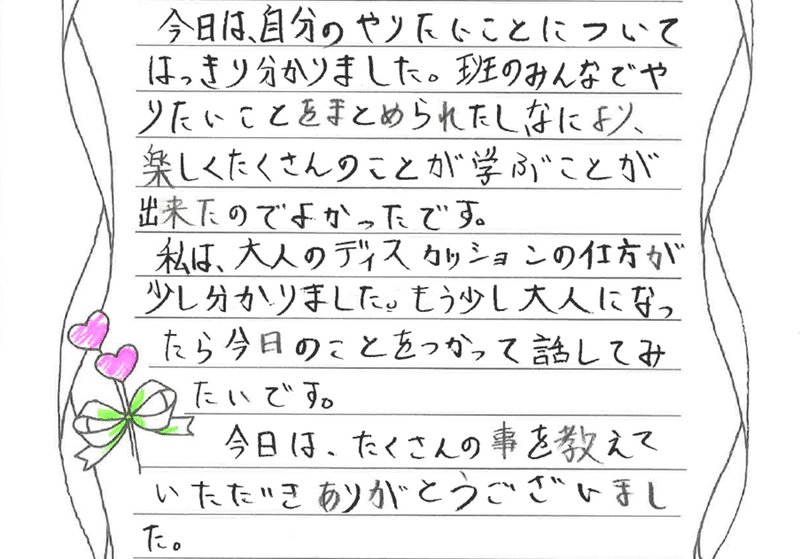 今日は、自分のやりたいことについて
はっきり分かりました。班のみんなでや
りたいことをまとめられたし、なにより、
楽しくたくさんのことが学ぶことが
出来たのでよかったです。
私は、大人のディスカッションの仕方が
少し分かりました。もう少し大人になっ
たら今日のことをつかって話してみ
たいです。
今日は、たくさんの事を教えて
いただきありがとうございまし
た。